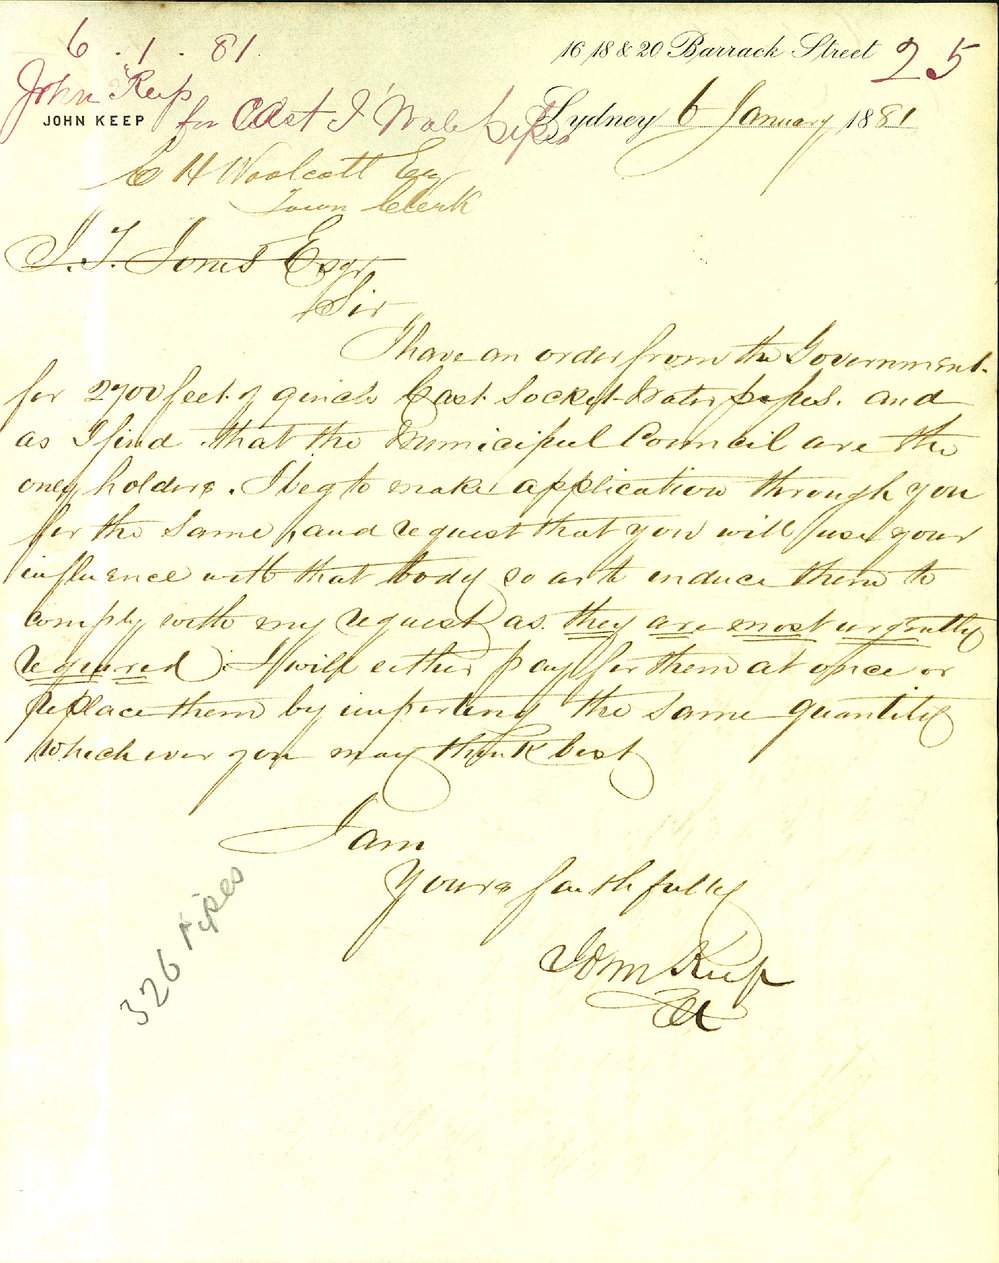 6 . 1 . 81.
16 18 & 20 Barrack Street
25
John Keep
JOHN KEEP
for Cast I Water pipes
Sydney 6 January 1881
C H Woolcott Esq
Town Clerk
J. T. Jones Esqr
Sir
I have an order from the Government
for 2700 feet of 9 inch Cast Socket Water pipes. and
as I find that the Municipal Council are the
only holders. I beg to make application through you
for the same, and request that you will use your
influence with that body so as to induce them to
comply with my request as they are most urgently
required. I will either pay for them at once or
replace them by importing the same quantity
whichever you may think best
I am
Yours faithfully
John Keep
326 Pipes